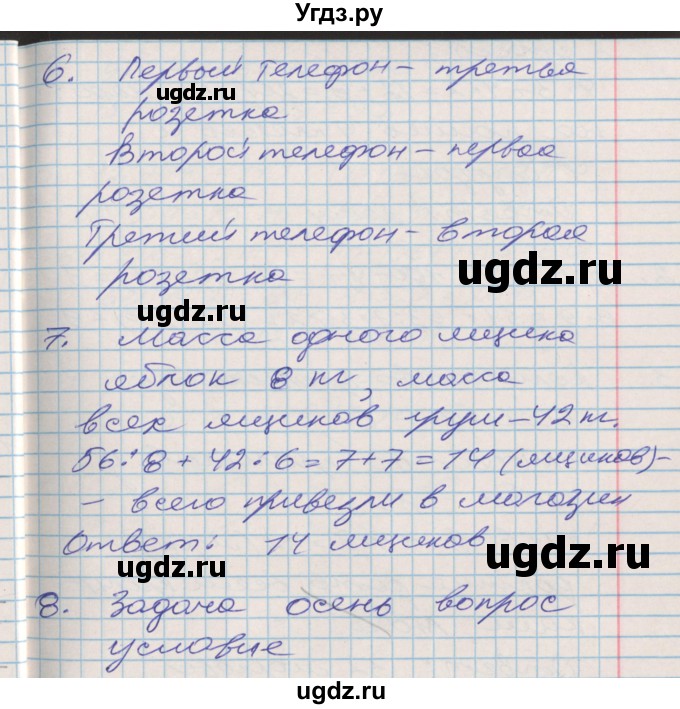 Угдз.ру
6. Первый телефон – третья
ugdz.ru
розетка
Второй телефон – первая
розетка
Третий телефон – вторая
ugdz.ru
розетка
ugdz.ru
7. Масса одного ящика
яблок 8 кг, масса
всех ящиков груш – 42 кг.
ugdz.ru
56 : 8 + 42 : 6 = 7 + 7 = 14 (ящиков) –
– всего привезли в магазин
Ответ: 14 ящиков
ugdz.ru
ugdz.ru
8. Задача осень вопрос
условие
ugdz.ru